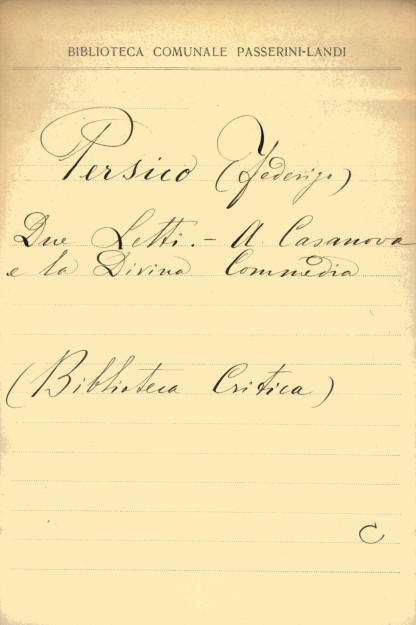 BIBLIOTECA COMUNALE PASSERINI-LANDI
Persico (Federigo)
Due Letti. - A Casanova
e la Divina Commedia
(Biblioteca Critica)
C